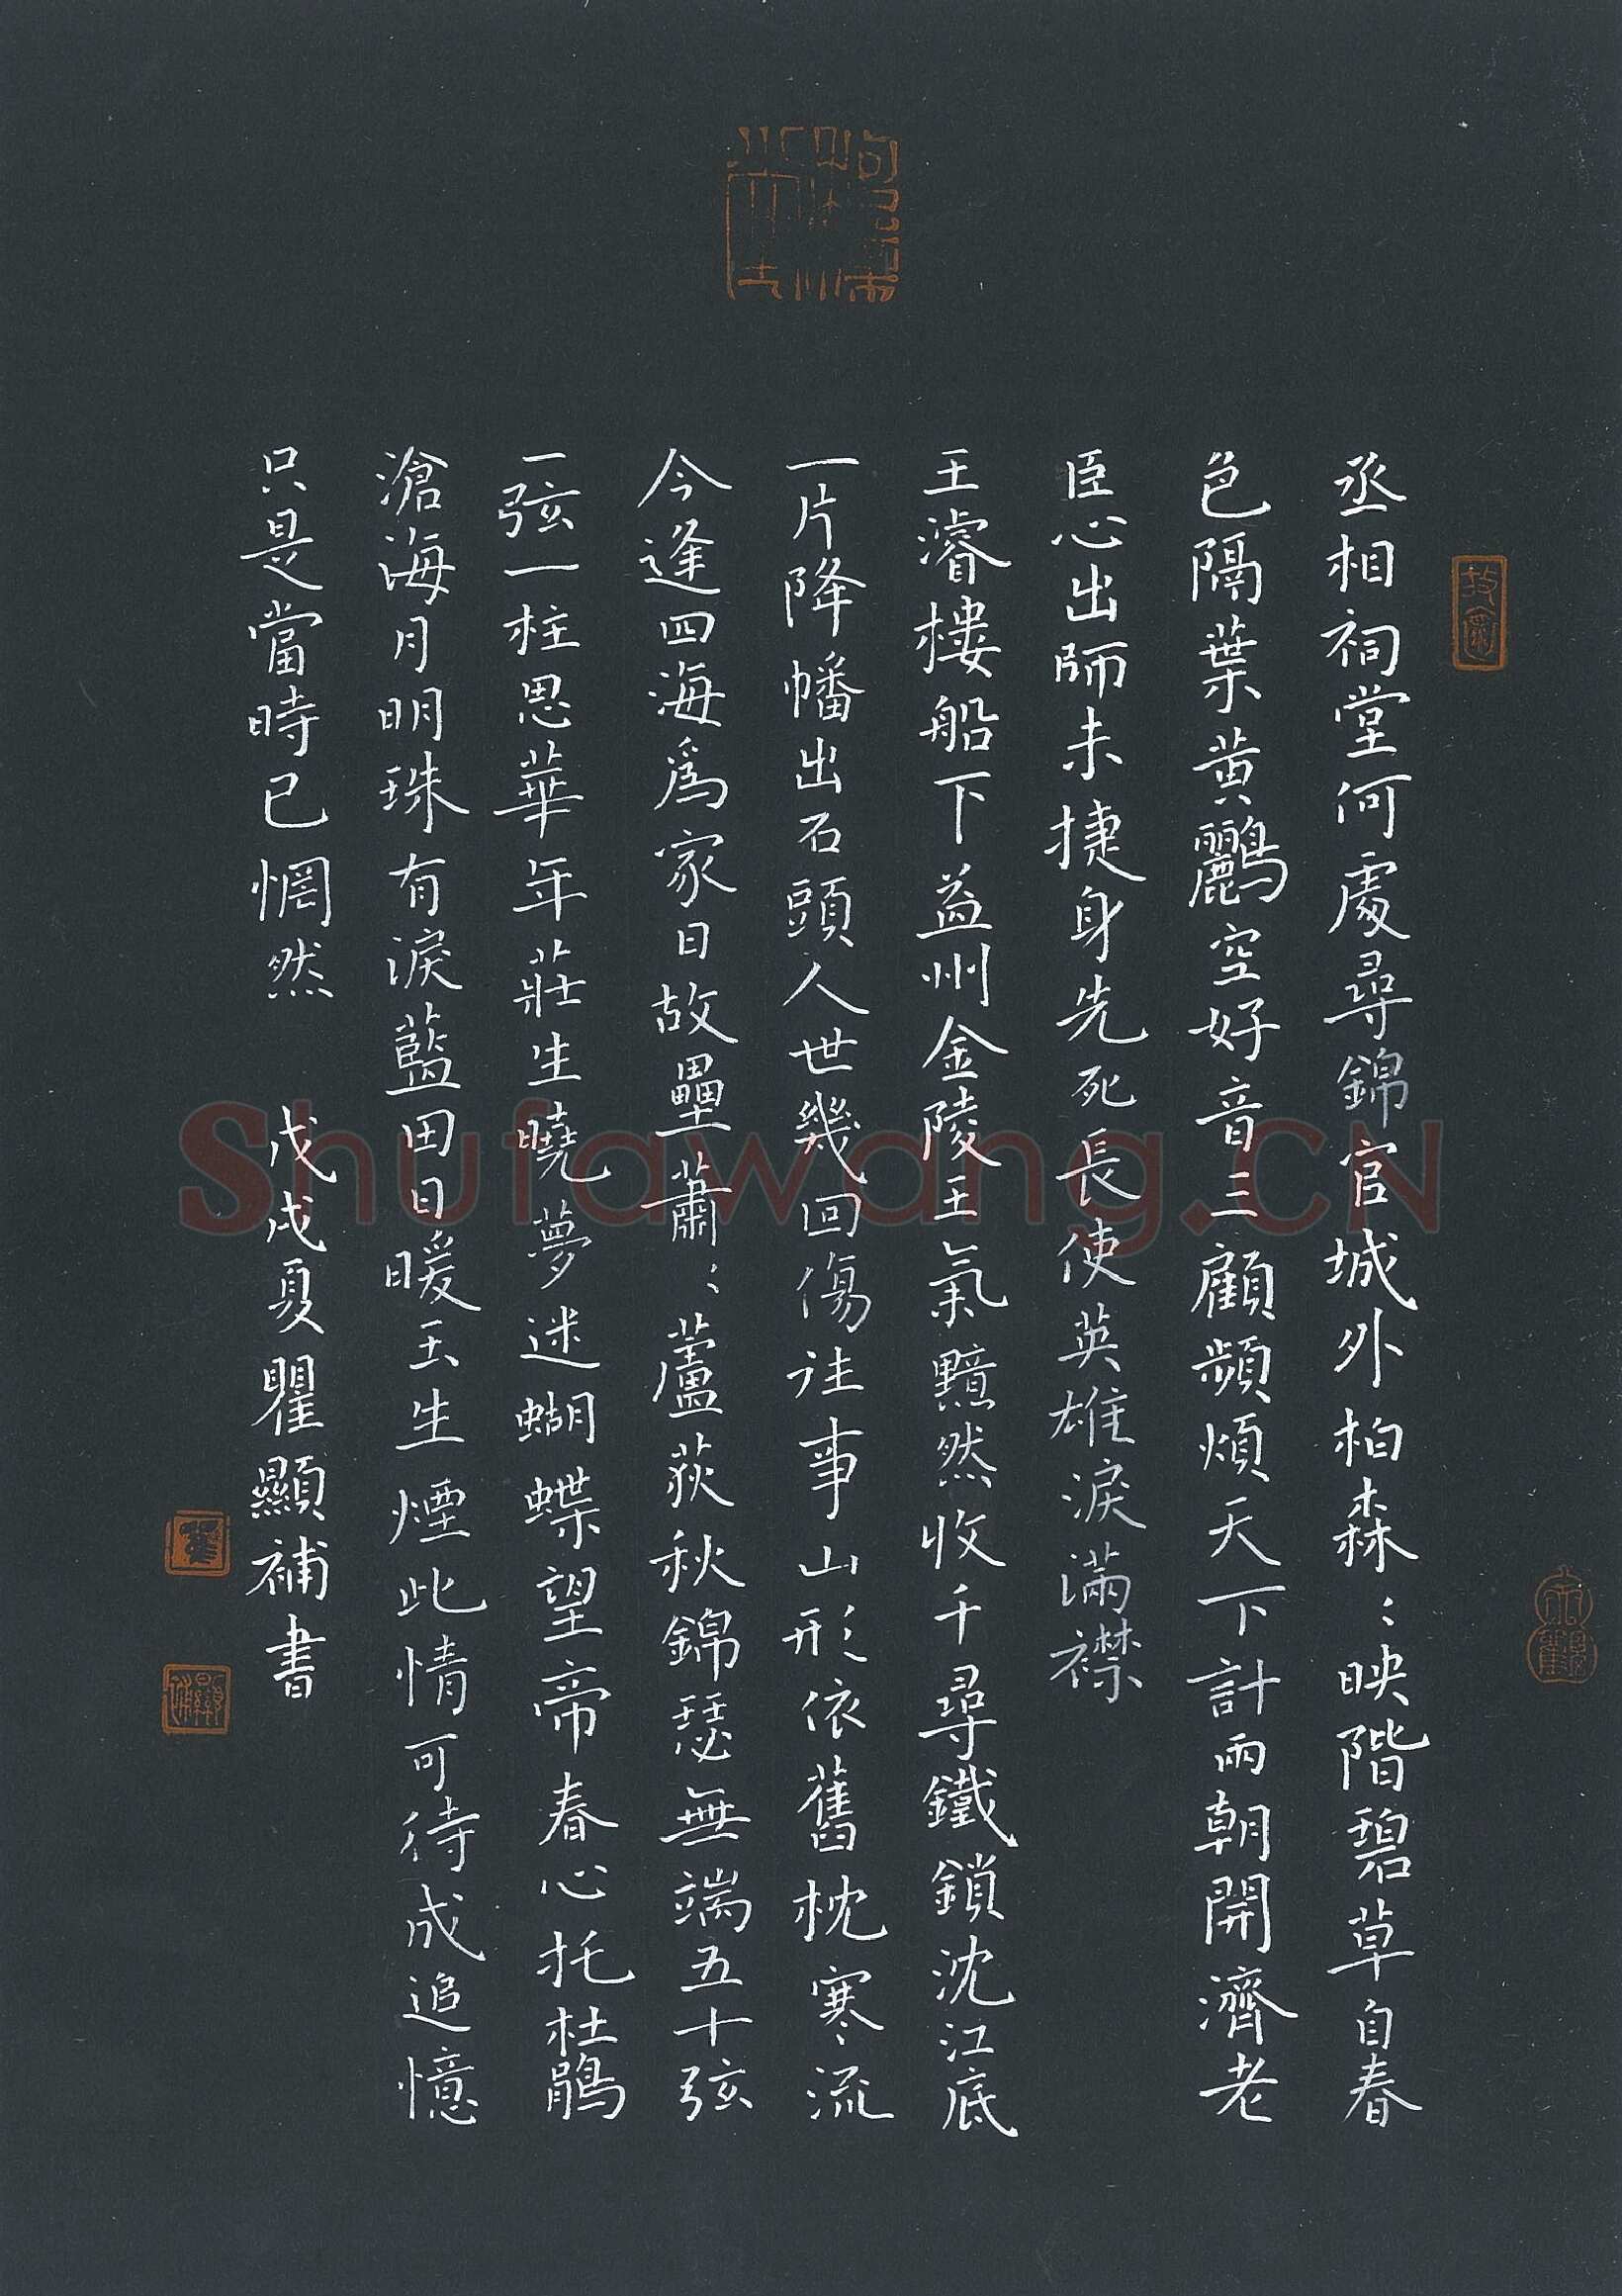 丞相祠堂何處尋錦官城外柏森〻映階碧草自春
色隔葉黄鸝空好音三顧頻煩天下計兩朝開濟老
臣心出師未捷身先死長使英雄淚滿襟
王濬樓船下益州金陵王氣黯然收千尋鐵鎖沈江底
一片降幡出石頭人世幾回傷往事山形依舊枕寒流
今逢四海為家日故壘蕭〻蘆荻秋錦瑟無端五十弦
一弦一柱思華年莊生曉夢迷蝴蝶望帝春心托杜鵑
滄海月明珠有淚藍田日暖玉生煙此情可待成追憶
只是當時已惘然 戊戌夏瞿顯補書
Shufawang.CN